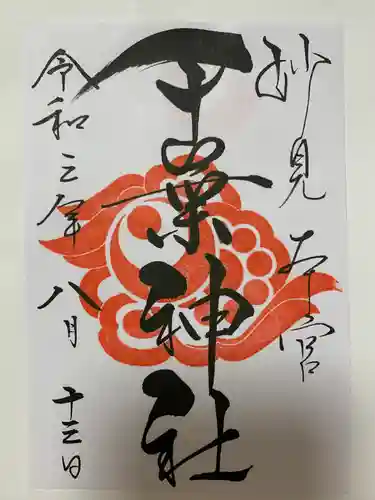 妙見本宮
千葉神社
令和三年
八月
十三日